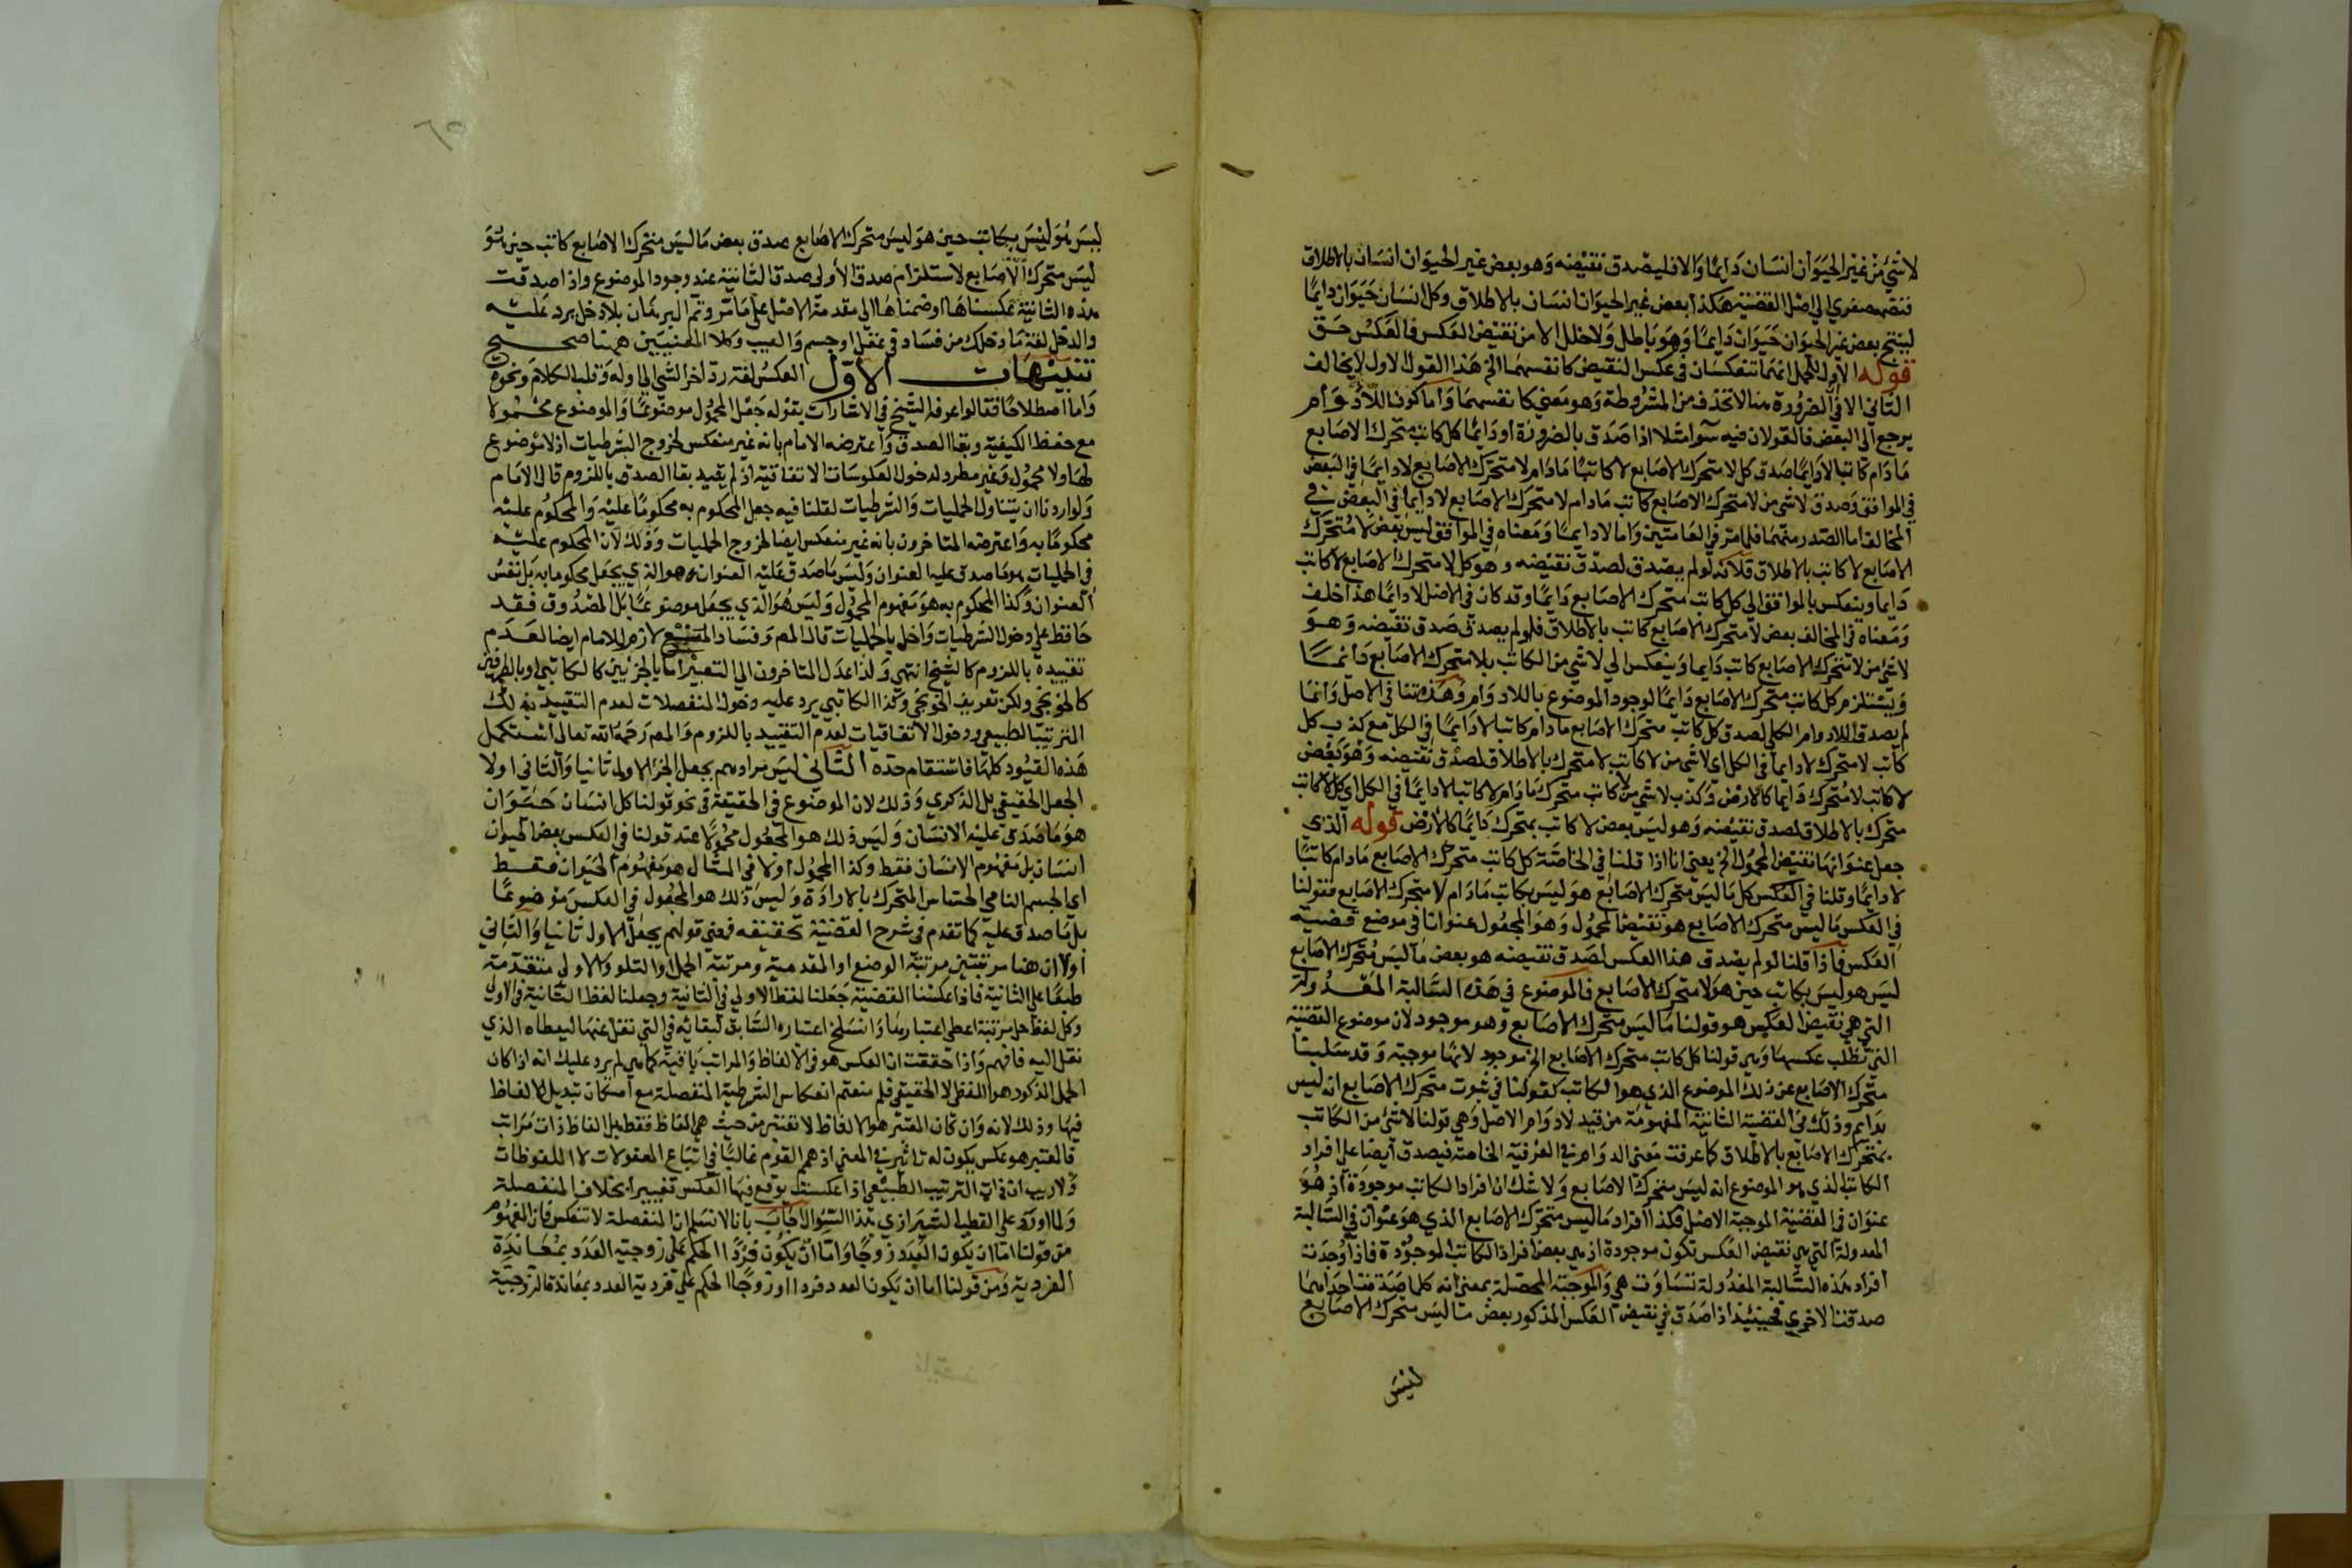 لا شيء من غير الحيوان انسان دايما والا فليصدق نقيضه وهو بعض غير الحيوان انسان بالاطلاق
فنضمه صغرى الى اصل القضية هكذا بعض غير الحيوان انسان بالاطلاق وكل انسان حيوان دايما
لينتج بعض غير الحيوان حيوان دايما وهو باطل ولا خلل الا من نقيض العكس فالعكس حق
قوله الاول الجمل انهما تنعكسان في عكس النقيض كانفسهما الخ هذا القول الاول لا يخالف
الثاني الا في الضرورة هنا لا تحذف من المشروطة وهو معنى كانفسهما واما كون اللادوام
يرجع الى البعض فالقولان فيه سوا مثلا اذا صدق بالضرورة او دايما كل كاتب متحرك الاصابع
ما دام كاتبا لا دايما صدق كل لا متحرك الاصابع لا كاتب ما دام لا متحرك الاصابع لا دايما في البعض
في الموافق وصدق لا شي من لا متحرك الاصابع كاتب ما دام لا متحرك الاصابع لا دايما في البعض في
المخالف اما الصدر منهما فلما مر في العامتين واما لا دايما ومعناه في الموافق ليس بعض لا متحرك
الاصابع لا كاتب بالاطلاق فلانه لو لم يصدق لصدق نقيضه وهو كل لا متحرك الاصابع لا كاتب
دايما وينعكس بالموافق الى كل كاتب متحرك الاصابع دايما وقد كان في الاصل لا دايما هذا خلف
ومعناه في المخالف بعض لا متحرك الاصابع كاتب بالاطلاق فلو لم يصدق صدق نقيضه وهو
لا شي من لا متحرك الاصابع كاتب دايما وينعكس الى لا شي من الكاتب بلا متحرك الاصابع دايما
ويستلزم كل كاتب متحرك الاصابع دايما لوجود الموضوع باللادوام وهذه تنافي الاصل وانما
لم يصدق اللادوام الكلي لصدق كل كاتب متحرك الاصابع ما دام كاتبا لا دايما في الكل مع كذب كل
كاتب لا متحرك لا دايما في الكل اي لا شي من لا كاتب لا متحرك بالاطلاق لصدق نقيضه وهو بعض
لا كاتب لا متحرك دايما كالارض وكذب لا شي من لا كاتب متحرك ما دام لا كاتبا لا دايما في الكل اي كل لا كاتب
متحرك بالاطلاق لصدق نقيضه وهو ليس بعض لا كاتب بمتحرك دايما كالارض قوله الذي
جعل عنوانها نقيض المحمول الخ يعني انا اذا قلنا في الخاصة كل كاتب متحرك الاصابع ما دام كاتبا
لا دايما وقلنا في العكس كل ما ليس متحرك الاصابع هو ليس بكاتب ما دام لا متحرك الاصابع فقولنا
في العكس ما ليس متحرك الاصابع هو نقيض المحمول وهو المجعول عنوانا في موضع قضية
العكس فاذا قلنا لو لم يصدق هذا العكس لصدق نقيضه هو بعض ما ليس متحرك الاصابع
ليس هو ليس بكاتب حين هو لا متحرك الاصابع فالموضوع في هذه السالبة المعدولة
التي هي نقيض العكس هو قولنا ما ليس متحرك الاصابع وهو موجود لان موضوع القضية
التي تطلب عكسها وهي قولنا كل كاتب متحرك الاصابع الخ موجود لانها موجبة وقد سلبنا
متحرك الاصابع عن ذلك الموضوع الذي هو الكاتب كقولنا في ثبوت متحرك الاصابع انه ليس
بدايم وذلك في القضية الثانية المفهومة من قيد لا دوام الاصل وهي قولنا لا شي من الكاتب
بمتحرك الاصابع بالاطلاق كما عرفت معنى الدوام في العرفية الخاصة فيصدق ايضا على افراد
الكاتب الذي هو الموضوع انه ليس متحرك الاصابع ولا شك ان افراد الكاتب موجودة اذ هو
عنوان في القضية الموجبة الاصل فكذا افراد ما ليس متحرك الاصابع الذي هو عنوان في السالبة
المعدولة التي هي نقيض العكس تكون موجودة اذ هي بعض افراد الكاتب الموجودة فاذا وجدت
افراد هذه السالبة المعدولة تساوت هي والموجبة المحصلة بمعنى انه كلما صدقت احداهما
صدقت الاخرى فحينئذ اذا صدق في نقيض العكس المذكور بعض ما ليس متحرك الاصابع
ليس
٦٥
ليس هو ليس بكاتب حين هو ليس متحرك الاصابع صدق بعض ما ليس متحرك الاصابع كاتب حين هو
ليس متحرك الاصابع لاستلزام صدق الاولى صدق الثانية عند وجود الموضوع واذا صدقت
هذه الثانية عكسناها او ضمناها الى مقدمة الاصل على ما مر وتم البرهان بلا دخل يرد عليه
والدخل لغة ما دخلك من فساد في عقل او جسم والعيب وكلا المعنيين هنا صحيح
تنبيهات الاول العكس لغة رد اخر الشي الى اوله وقلب الكلام ونحوه
واما اصطلاحا فقالوا عرفه الشيخ في الاشارات بقوله جعل المحمول موضوعا والموضوع محمولا
مع حفظ الكيفية وبقا الصدق واعترضه الامام بانه غير منعكس لخروج الشرطيات اذ لا موضوع
لها ولا محمول وغير مطرد لدخول العكوسات الاتفاقية اذ لم يقيد بقا الصدق باللزوم قال الامام
ولو اردنا ان يتناول الحمليات والشرطيات لقلنا فيه جعل المحكوم به محكوما عليه والمحكوم عليه
محكوما به واعترضه المتاخرون بانه غير منعكس ايضا لخروج الحمليات وذلك لان المحكوم عليه
في الحمليات هو ما صدق عليه العنوان وليس ما صدق عليه العنوان هو الذي يجعل محكوما به بل نفس
العنوان وكذا المحكوم به هو مفهوم المحمول وليس هو الذي يجعل موضوعا بل المصدوق فقد
حافظ على دخول الشرطيات واخل بالحمليات قال المص وفساد لازم للامام ايضا لعدم
تقييده باللزوم كالشيخ انتهى ولذا عدل المتاخرون الى التعبير اما بالجزئين كالكاتبي او بالطرفين
كالخونجي ولكن تعريف الخونجي وكذا الكاتبي يرد عليه دخول المنفصلات لعدم التقييد بذلك
الترتيب الطبيعي ودخول الاتفاقيات لعدم التقييد باللزوم والمص رحمه الله تعالى استكمل
هذه القيود كلها فاستقام حده الثاني ليس مرادهم بجعل الجزء الاول ثانيا والثاني اولا
الجعل الحقيقي بل الذكري وذلك لان الموضوع في الحقيقة في نحو قولنا كل انسان حيوان
هو ما صدق عليه الانسان وليس ذلك هو المجعول محمولا عند قولنا في العكس بعض الحيوان
انسان بل مفهوم الانسان فقط وكذا المحمول اولا في المثال هو مفهوم الحيوان فقط
اي الجسم النامي الحساس المتحرك بالارادة وليس ذلك هو المجعول في العكس موضوعا
بل ما صدق عليه كما تقدم في شرح القضية تحقيقه فمعنى قولهم يجعل الاول ثانيا والثاني
اولا ان هنا مرتبتين مرتبة الوضع او المقدمية ومرتبة الحمل او التلو والاولى متقدمة
طبعا على الثانية فاذا عكسنا القضية جعلنا لفظ الاولى في الثانية وجعلنا لفظ الثانية في الاولى
وكل لفظ حل مرتبة اعطي اعتبارها وانسلخ اعتباره السابق لبقائه في التي نقل عنها ليعطاه الذي
نقل اليه فافهم واذا حققت ان العكس هو في الالفاظ والمراتب باقية كما هي لم يرد عليك انه اذا كان
الجعل المذكور هو اللفظي لا الحقيقي فلم منعتم انعكاس الشرطية المنفصلة مع امكان تبديل الالفاظ
فيها وذلك لانه وان كان المعتبر هو الالفاظ لا تعتبر من حيث هي الفاظ فقط بل الفاظ ذات مراتب
فالمعتبر هو عكس يكون له تاثير في المعنى اذ هم القوم غالبا في اتباع المعقولات لا الملفوظات
ولا ريب ان ذات الترتيب الطبيعي اذا عكست يوقع فيها العكس تغييرا بخلاف المنفصلة
ولما اورد على القطب الشيرازي هذا السؤال اجاب بانا لا نسلم ان المنفصلة لا تنعكس فان المفهوم
من قولنا اما ان يكون العدد زوجا واما ان يكون فردا الحكم على زوجية العدد بمعاندة
الفردية ومن قولنا اما ان يكون العدد فردا او زوجا الحكم على فردية العدد بمعاندة الزوجية